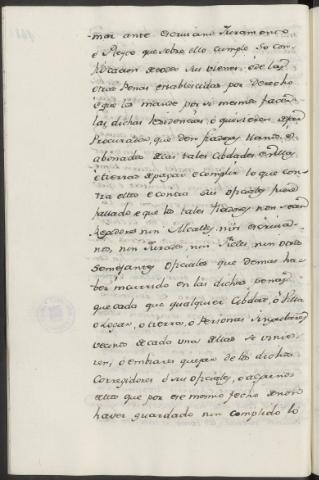 mar ante escriuano Juramento
o Pleyto que sobre ello cumple so con
fiscacion de todos sus vienes, o de las
otras penas establecidas por derecho
e que les mande por si mesmo facer
las dichas Residencias, o quisieren dejar
Procurador, que den fiadores llanos, e
abonados de las tales Cibdades e Villas,
e tierras de pagar, e complir lo que con
tra ellos e contra sus oficiales fuere
fallado, e que los tales fiadores non sean
Regidores nin Alcaldes, nin escriua
nos, nin Jurados, nin Fieles, nin otros
semejantes oficiales que demas ha
ber incurrido en las dichas penas
que cada que qualquier Cibdad, o Villa
o Logar, o tierra, o Personas singulares
vecinos de cada una dellas se vinie
ren, o embiaren quejar de los dichos
Corregidores o sus oficiales, o de algunos
dellos que por ese mismo fecho de non
haver guardado nin complido lo